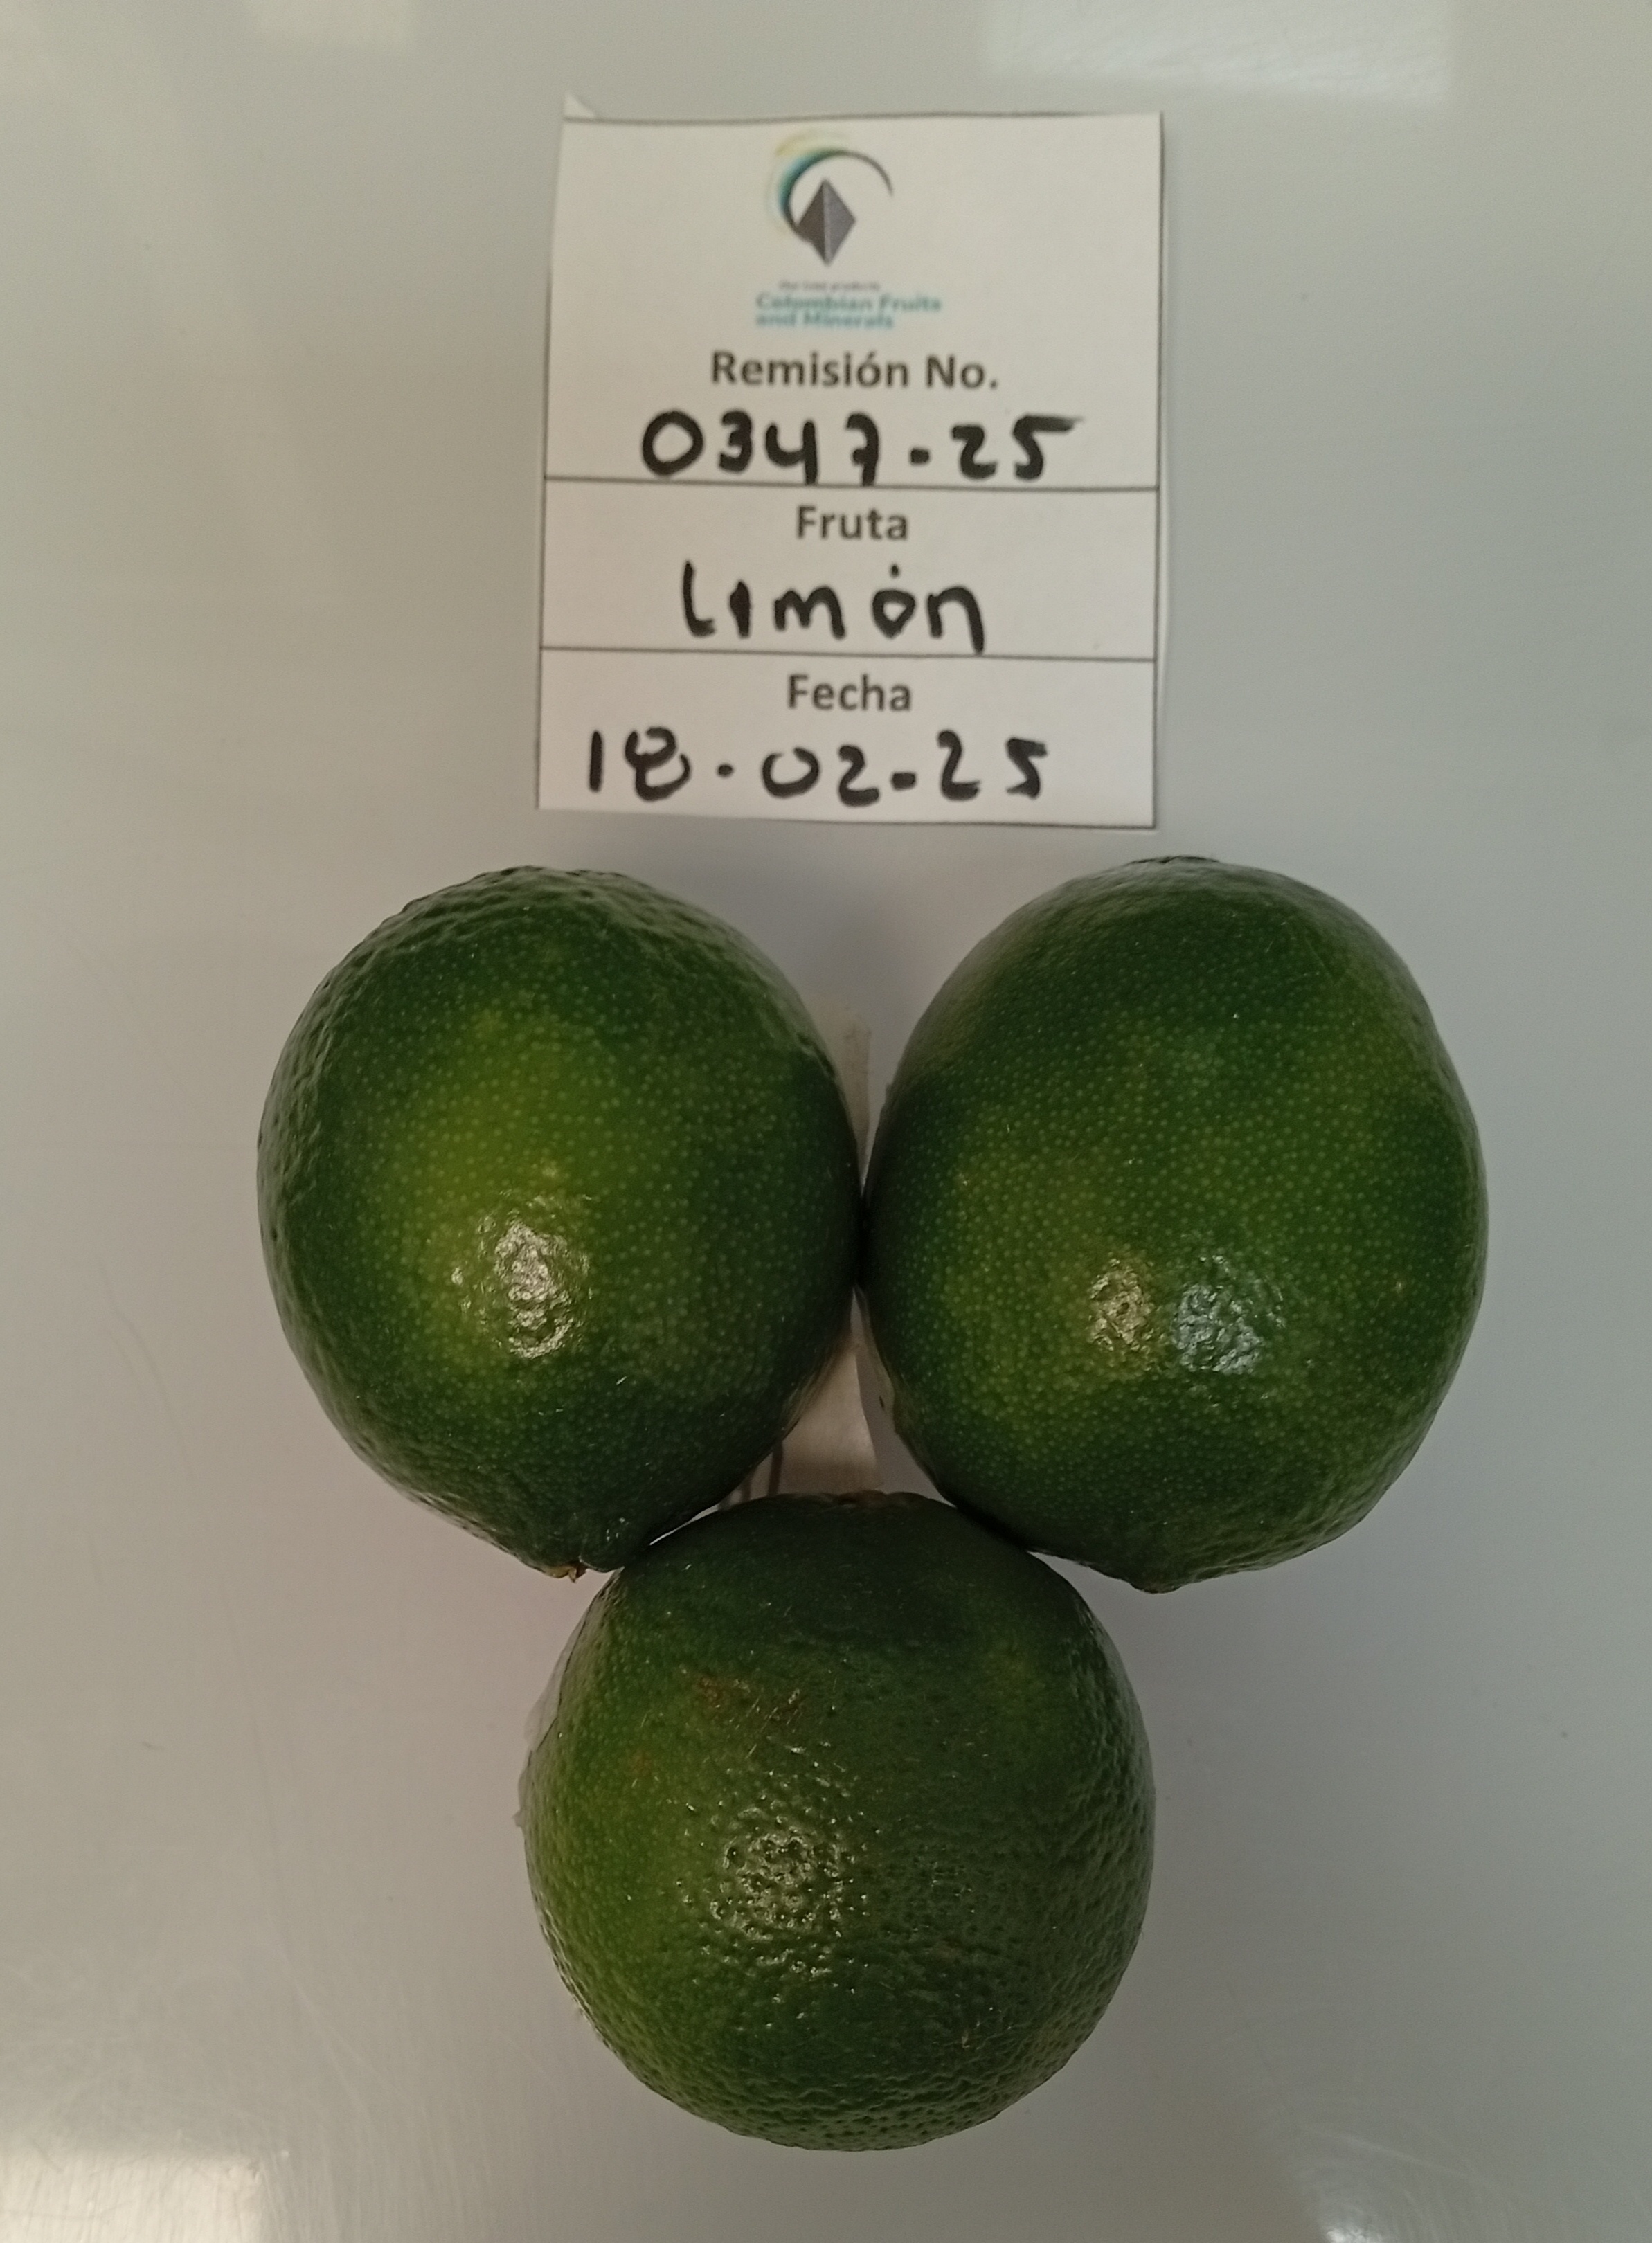 Colombian Fruits
and Minerals
Remisión No.
0347-25
Fruta
Limón
Fecha
18-02-25